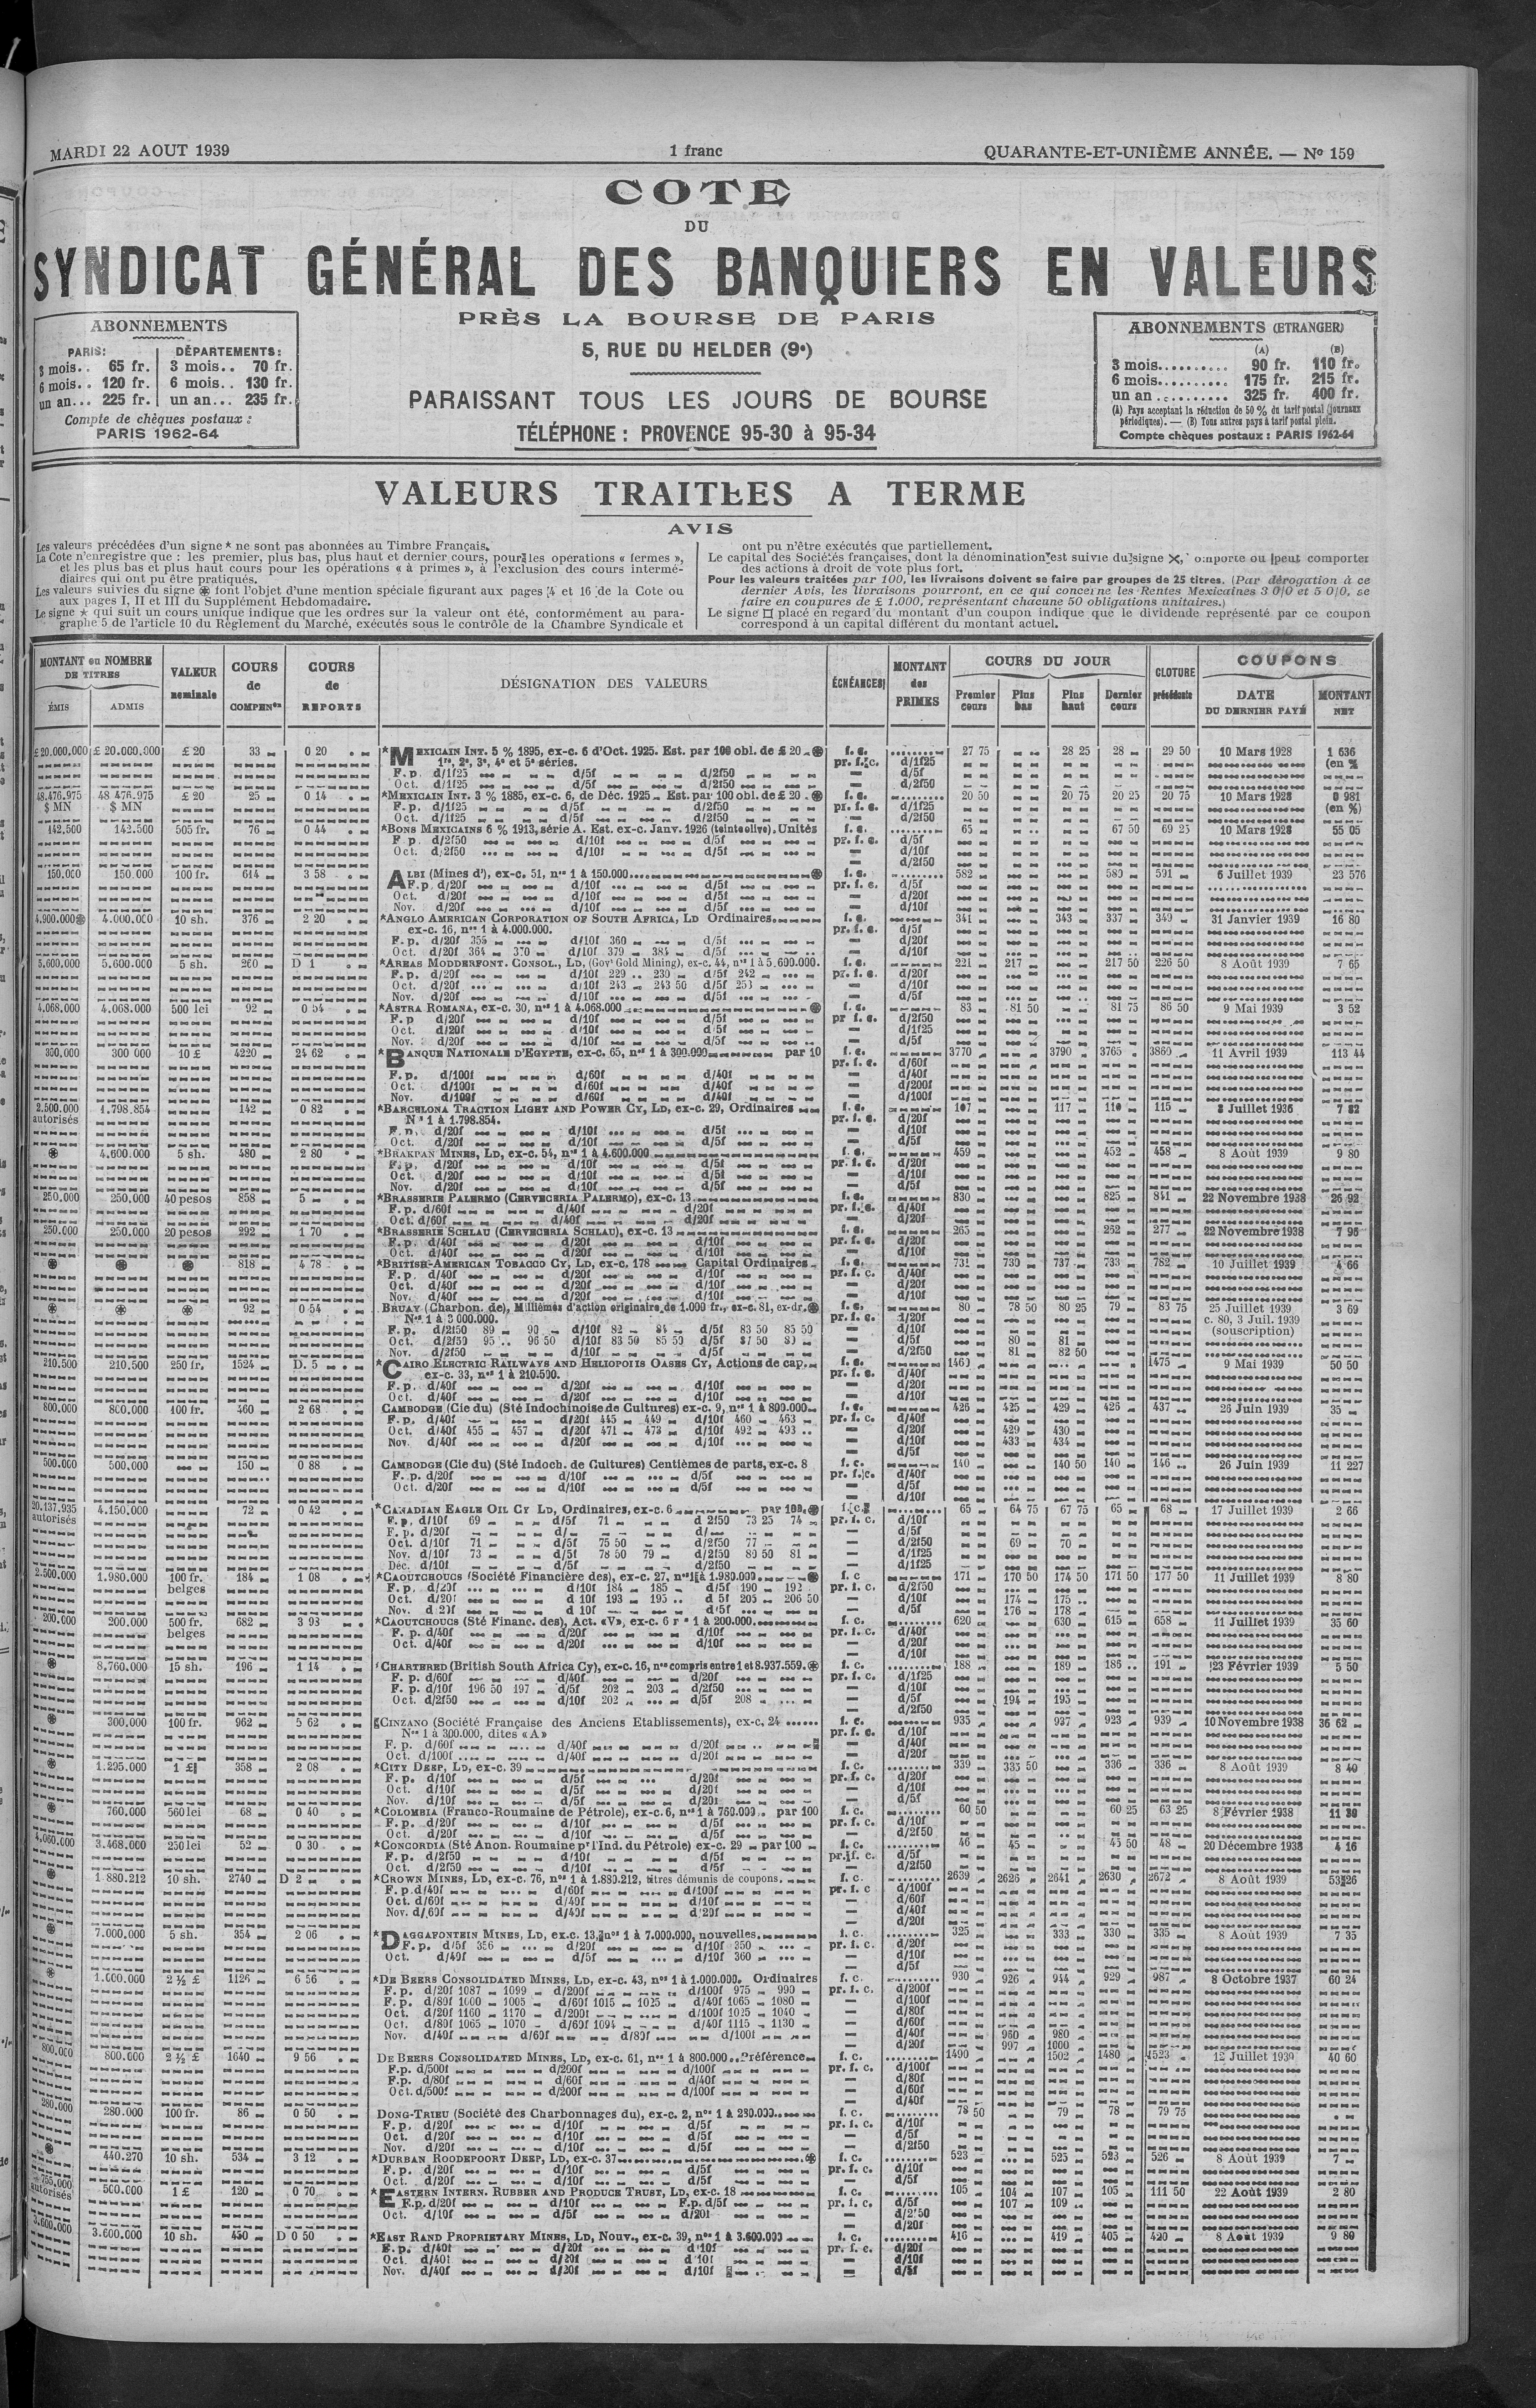 MARDI 22 AOUT 1939
1 franc
QUARANTE-ET-UNIÈME ANNÉE. — No 159
COTE
DU
SYNDICAT GÉNÉRAL DES BANQUIERS EN VALEURS
PRÈS LA BOURSE DE PARIS
5, RUE DU HELDER (9e)
PARAISSANT TOUS LES JOURS DE BOURSE
TÉLÉPHONE : PROVENCE 95-30 à 95-34
ABONNEMENTS
PARIS: DÉPARTEMENTS:
3 mois.. 65 fr. 3 mois.. 70 fr.
6 mois.. 120 fr. 6 mois.. 130 fr.
un an... 225 fr. un an... 235 fr.
Compte de chèques postaux :
PARIS 1962-64
ABONNEMENTS (ETRANGER)
(A) (B)
3 mois.......... 90 fr. 110 fr.
6 mois.......... 175 fr. 215 fr.
un an .......... 325 fr. 400 fr.
(A) Pays acceptant la réduction de 50 % du tarif postal (journaux
périodiques). — (B) Tous autres pays à tarif postal plein.
Compte chèques postaux : PARIS 1962-64
VALEURS TRAITÉES A TERME
AVIS
Les valeurs précédées d'un signe * ne sont pas abonnées au Timbre Français.
La Cote n'enregistre que : les premier, plus bas, plus haut et dernier cours, pour les opérations « fermes »,
et les plus bas et plus haut cours pour les opérations « à primes », à l'exclusion des cours intermé-
diaires qui ont pu être pratiqués.
Les valeurs suivies du signe ⊛ font l'objet d'une mention spéciale figurant aux pages 4 et 16 de la Cote ou
aux pages I, II et III du Supplément Hebdomadaire.
Le signe ★ qui suit un cours unique indique que les ordres sur la valeur ont été, conformément au para-
graphe 5 de l'article 10 du Règlement du Marché, exécutés sous le contrôle de la Chambre Syndicale et
ont pu n'être exécutés que partiellement.
Le capital des Sociétés françaises, dont la dénomination est suivie du signe ✕, comporte ou peut comporter
des actions à droit de vote plus fort.
Pour les valeurs traitées par 100, les livraisons doivent se faire par groupes de 25 titres. (Par dérogation à ce
dernier Avis, les livraisons pourront, en ce qui concerne les Rentes Mexicaines 3 0/0 et 5 0/0, se
faire en coupures de £ 1.000, représentant chacune 50 obligations unitaires.)
Le signe □ placé en regard du montant d'un coupon indique que le dividende représenté par ce coupon
correspond à un capital différent du montant actuel.
MONTANT ou NOMBRE DE TITRES
ÉMIS ADMIS
VALEUR nominale
COURS de COMPENon
COURS de REPORTS
DÉSIGNATION DES VALEURS
ÉCHÉANCES
MONTANT des PRIMES
COURS DU JOUR
Premier cours Plus bas Plus haut Dernier cours
CLOTURE précédente
COUPONS
DATE DU DERNIER PAYÉ MONTANT NET
£ 20.000.000 £ 20.000.000 £ 20 33 0 20 *MEXICAIN INT. 5 % 1895, ex-c. 6 d'Oct. 1925. Est. par 100 obl. de £ 20 ⊛ f. c. 27 75 28 25 28 29 50 10 Mars 1928 1 636
1re, 2e, 3e, 4e et 5e séries. pr. f. c. d/1f25 (en %
F. p. d/1f25 d/5f d/2f50 d/5f
Oct. d/1f25 d/5f d/2f50 d/2f50
48.476.975 48 476.975 £ 20 25 0 14 *MEXICAIN INT. 3 % 1885, ex-c. 6, de Déc. 1925 Est. par 100 obl. de £ 20 ⊛ f. c. 20 50 20 75 20 25 20 75 10 Mars 1928 0 981
$ MN $ MN F. p. d/1f25 d/5f d/2f50 pr. f. c. d/1f25 (en %)
Oct. d/1f25 d/5f d/2f50 d/2f50
142.500 142.500 505 fr. 76 0 44 *BONS MEXICAINS 6 % 1913, série A. Est. ex-c. Janv. 1926 (teinte olive). Unités f. c. 65 67 50 69 25 10 Mars 1928 55 05
F p d/2f50 d/10f d/5f pr. f. c. d/5f
Oct. d/2f50 d/10f d/5f d/10f
d/2f50
150.000 150.000 100 fr. 614 3 58 ALBI (Mines d'), ex-c. 51, nos 1 à 150.000 ⊛ f. c. 582 580 591 6 Juillet 1939 23 576
F. p. d/20f d/10f d/5f pr. f. c. d/5f
Oct. d/20f d/10f d/5f d/20f
Nov. d/20f d/10f d/5f d/10f
4.900.000⊛ 4.000.000 10 sh. 376 2 20 *ANGLO AMERICAN CORPORATION OF SOUTH AFRICA, LD Ordinaires. f. c. 341 343 337 349 31 Janvier 1939 16 80
ex-c. 16, nos 1 à 4.000.000. pr. f. c. d/5f
F. p. d/20f 355 d/10f 360 d/5f d/20f
Oct. d/20f 364 370 d/10f 379 384 d/5f d/10f
5.600.000 5.600.000 5 sh. 260 D 1 *AREAS MODDERFONT. CONSOL., LD, (Govt Gold Mining), ex-c. 44, nos 1 à 5.600.000. f. c. 221 217 217 50 226 50 8 Août 1939 7 65
F. p. d/20f d/10f 229 230 d/5f 242 pr. f. c. d/20f
Oct. d/20f d/10f 243 243 50 d/5f d/10f
Nov. d/20f d/10f d/5f d/5f
4.068.000 4.068.000 500 lei 92 0 54 *ASTRA ROMANA, ex-c. 30, nos 1 à 4.068.000 ⊛ f. c. 83 81 50 81 75 86 50 9 Mai 1939 3 52
F. p d/20f d/10f d/5f pr f. c. d/2f50
Oct. d/20f d/10f d/5f d/1f25
Nov. d/20f d/10f d/5f d/5f
300.000 300 000 10 £ 4220 24 62 *BANQUE NATIONALE D'EGYPTE, ex-c. 65, nos 1 à 300.000 par 10 f. c. 3770 3790 3765 3860 11 Avril 1939 113 44
pr. f. c. d/60f
F. p. d/100f d/60f d/40f d/40f
Oct. d/100f d/60f d/40f d/200f
Nov. d/100f d/60f d/40f d/100f
2.500.000 1.798.854 142 0 82 *BARCELONA TRACTION LIGHT AND POWER CY, LD, ex-c. 29, Ordinaires f. c. 107 117 110 115 8 Juillet 1936 7 82
autorisés Nos 1 à 1.798.854. pr. f. c. d/20f
F. p. d/20f d/10f d/5f d/10f
Oct. d/20f d/10f d/5f d/5f
⊛ 4.600.000 5 sh. 480 2 80 *BRAKPAN MINES, LD, ex-c. 54, nos 1 à 4.600.000 f. c. 459 452 458 8 Août 1939 9 80
F. p. d/20f d/10f d/5f pr. f. c. d/20f
Oct. d/20f d/10f d/5f d/10f
Nov. d/20f d/10f d/5f d/5f
250.000 250.000 40 pesos 858 5 *BRASSERIE PALERMO (CERVECERIA PALERMO), ex-c. 13 f. c. 830 825 841 22 Novembre 1938 26 92
F. p. d/60f d/40f d/20f pr. f. c. d/40f
Oct. d/60f d/40f d/20f d/20f
250.000 250.000 20 pesos 292 1 70 *BRASSERIE SCHLAU (CERVECERIA SCHLAU), ex-c. 13 f. c. 265 252 277 22 Novembre 1938 7 95
F. p. d/40f d/20f d/10f pr. f. c. d/20f
Oct. d/40f d/20f d/10f d/10f
⊛ ⊛ ⊛ 818 4 78 *BRITISH-AMERICAN TOBACCO CY, LD, ex-c. 178 Capital Ordinaires f. c. 731 730 737 733 782 10 Juillet 1939 4 66
F. p. d/40f d/20f d/10f pr. f. c. d/40f
Oct. d/40f d/20f d/10f d/20f
Nov. d/40f d/20f d/10f d/10f
⊛ ⊛ ⊛ 92 0 54 BRUAY (Charbon. de), Millièmes d'action originaire de 1.000 fr., ex-c. 81, ex-dr. ⊛ f. c. 80 78 50 80 25 79 83 75 25 Juillet 1939 3 69
Nos 1 à 3 000.000. pr. f. c. d/20f c. 80, 3 Juil. 1939
F. p. d/2f50 89 90 d/10f 82 84 d/5f 83 50 85 50 d/10f (souscription)
Oct. d/2f50 95 96 50 d/10f 83 50 85 50 d/5f 87 50 d/5f 80 81
Nov. d/2f50 d/10f d/5f d/2f50 81 82 50
210.500 210.500 250 fr. 1524 D. 5 *CAIRO ELECTRIC RAILWAYS AND HELIOPOLIS OASES CY, Actions de cap. f. c. 1460 1475 9 Mai 1939 50 50
ex-c. 33, nos 1 à 210.500. pr. f. c. d/40f
F. p. d/40f d/20f d/10f d/20f
Oct. d/40f d/20f d/10f d/10f
800.000 800.000 100 fr. 460 2 68 CAMBODGE (Cie du) (Sté Indochinoise de Cultures) ex-c. 9, nos 1 à 800.000 f. c. 426 425 429 426 437 26 Juin 1939 35
F. p. d/40f d/20f 445 449 d/10f 460 463 pr. f. c. d/40f
Oct. d/40f 455 457 d/20f 471 473 d/10f 492 493 d/20f 429 430
Nov. d/40f d/20f d/10f d/10f 433 434
d/5f
500.000 500.000 150 0 88 CAMBODGE (Cie du) (Sté Indoch. de Cultures) Centièmes de parts, ex-c. 8 f. c. 140 140 50 140 146 26 Juin 1939 11 227
F. p. d/20f d/10f d/5f pr. f. c. d/40f
Oct. d/20f d/10f d/5f d/5f
d/10f
20.137.935 4.150.000 72 0 42 *CANADIAN EAGLE OIL CY LD, Ordinaires, ex-c. 6 par 100. ⊛ f. c. 65 64 75 67 75 65 68 17 Juillet 1939 2 66
autorisés F. p. d/10f 69 d/5f 71 d/2f50 73 25 74 pr. f. c. d/10f
F. p. d/20f d/ d/ d/5f
Oct. d/10f 71 d/5f 75 50 d/2f50 77 d/2f50 69 70
Nov. d/10f 73 d/5f 78 50 79 d/2f50 80 50 81 d/1f25
Déc. d/10f d/5f d/2f50 d/1f25
2.500.000 1.980.000 100 fr. 184 1 08 *CAOUTCHOUCS (Société Financière des), ex-c. 27, nos 1 à 1.980.000 ⊛ f. c 171 170 50 174 50 171 50 177 50 11 Juillet 1939 8 80
belges F. p. d/20f d/10f 184 185 d/5f 190 192 pr. f. c. d/2f50
Oct. d/20f d 10f 193 195 d 5f 205 206 50 d/10f 174 175
Nov. d 20f d 10f d/5f d/5f 176 178
200.000 200.000 500 fr. 682 3 98 *CAOUTCHOUCS (Sté Financ. des), Act. «V», ex-c. 6 nos 1 à 200.000 f. c. 620 630 615 658 11 Juillet 1939 35 60
belges F. p. d/40f d/20f d/10f pr. f. c. d/40f
Oct. d/40f d/20f d/10f d/20f
d/10f
⊛ 8.760.000 15 sh. 196 1 14 *CHARTERED (British South Africa Cy), ex-c. 16, nos compris entre 1 et 8.937.559. ⊛ f. c. 188 189 186 191 23 Février 1939 5 50
F. p. d/60f d/40f d/20f pr. f. c. d/1f25
F. p. d/10f 196 50 197 d/5f 202 203 d/2f50 d/10f
Oct. d/2f50 d/10f 202 d/5f 208 d/5f 194 195
d/2f50
⊛ 300.000 100 fr. 962 5 62 CINZANO (Société Française des Anciens Etablissements), ex-c. 24 f. c. 935 937 923 939 10 Novembre 1938 36 62
Nos 1 à 300.000, dites «A» pr. f. c. d/10f
F. p. d/60f d/40f d/20f d/40f
Oct. d/100f d/40f d/20f d/20f
⊛ 1.295.000 1 £ 358 2 08 *CITY DEEP, LD, ex-c. 39 f. c. 339 335 50 336 336 8 Août 1939 8 40
F. p. d/10f d/5f d/20f pr. f. c. d/20f
Oct. d/10f d/5f d/20f d/10f
Nov. d/10f d/5f d/20f d/5f
⊛ 760.000 560 lei 68 0 40 *COLOMBIA (Franco-Roumaine de Pétrole), ex-c. 6, nos 1 à 760.000 par 100 f. c. 60 50 60 25 63 25 8 Février 1938 11 30
F. p. d/20f d/10f d/5f pr. f. c. d/10f
Oct. d/20f d/10f d/5f d/2f50
4.060.000 3.468.000 250 lei 52 0 30 *CONCORDIA (Sté Anon. Roumaine pr l'Ind. du Pétrole) ex-c. 29 par 100 f. c. 46 45 45 50 48 20 Décembre 1938 4 16
F. p. d/2f50 d/10f d/5f pr. f. c. d/5f
Oct. d/2f50 d/10f d/5f d/2f50
⊛ 1 880.212 10 sh. 2740 D 2 *CROWN MINES, LD, ex-c. 76, nos 1 à 1.880.212, titres démunis de coupons. f. c. 2639 2626 2641 2630 2672 8 Août 1939 53 26
F. p. d/40f d/60f d/100f pr. f. c d/100f
Oct. d/60f d/40f d/10f d/60f
Nov. d/60f d/40f d/20f d/40f
d/20f
⊛ 7.000.000 5 sh. 354 2 06 *DAGGAFONTEIN MINES, LD, ex-c. 13, nos 1 à 7.000.000, nouvelles. f. c. 325 333 330 335 8 Août 1939 7 35
F. p. d/5f 356 d/20f d/10f 350 pr. f. c. d/20f
Oct. d/40f d/5f d/10f 360 d/10f
d/5f
⊛ 1.000.000 2 ½ £ 1126 6 56 *DE BEERS CONSOLIDATED MINES, LD, ex-c. 43, nos 1 à 1.000.000. Ordinaires f. c. 930 926 944 929 987 8 Octobre 1937 60 24
F. p. d/20f 1087 1099 d/200f d/100f 975 990 pr. f. c. d/200f
F. p. d/80f 1000 1005 d/60f 1015 1025 d/40f 1065 1080 d/100f
Oct. d/20f 1160 1170 d/200f d/100f 1025 1040 d/80f
Oct. d/80f 1065 1070 d/60f 1094 d/40f 1115 1130 d/60f
Nov. d/40f d/60f d/80f d/100f d/40f 960 980
d/20f 997 1000
800.000 800.000 2 ½ £ 1640 9 56 DE BEERS CONSOLIDATED MINES, LD, ex-c. 61, nos 1 à 800.000 Préférence f. c. 1490 1502 1480 1523 12 Juillet 1939 40 60
F. p. d/500f d/200f d/100f pr. f. c. d/100f
F. p. d/80f d/60f d/40f d/80f
Oct. d/500f d/200f d/100f d/60f
d/40f
280.000 280.000 100 fr. 86 0 50 DONG-TRIEU (Société des Charbonnages du), ex-c. 2, nos 1 à 280.000 f. c. 78 50 79 78 79 75
F. p. d/20f d/10f d/5f pr. f. c. d/10f
Oct. d/20f d/10f d/5f d/5f
Nov. d/20f d/10f d/5f d/2f50
⊛ 440.270 10 sh. 534 3 12 *DURBAN ROODEPOORT DEEP, LD, ex-c. 37 ⊛ f. c. 523 525 523 526 8 Août 1939 7
F. p. d/20f d/10f d/5f pr. f. c. d/10f
Oct. d/20f d/10f d/5f d/5f
755.000 500.000 1 £ 120 0 70 *EASTERN INTERN. RUBBER AND PRODUCE TRUST, LD, ex-c. 18 f. c. 105 104 107 105 111 50 22 Août 1939 2 80
autorisés F. p. d/20f d/10f F. p. d/5f pr. f. c. d/5f 107 109
Oct. d/10f d/5f d/20f d/2f50
d/20f
3.600.000 3.600.000 10 sh. 450 D 0 50 *EAST RAND PROPRIETARY MINES, LD, Nouv., ex-c. 39, nos 1 à 3.600.000 f. c. 416 419 405 420 8 Août 1939 9 80
F. p. d/40f d/20f d/10f pr. f. c. d/20f
Oct. d/40f d/20f d/10f d/10f
Nov. d/40f d/20f d/10f d/5f